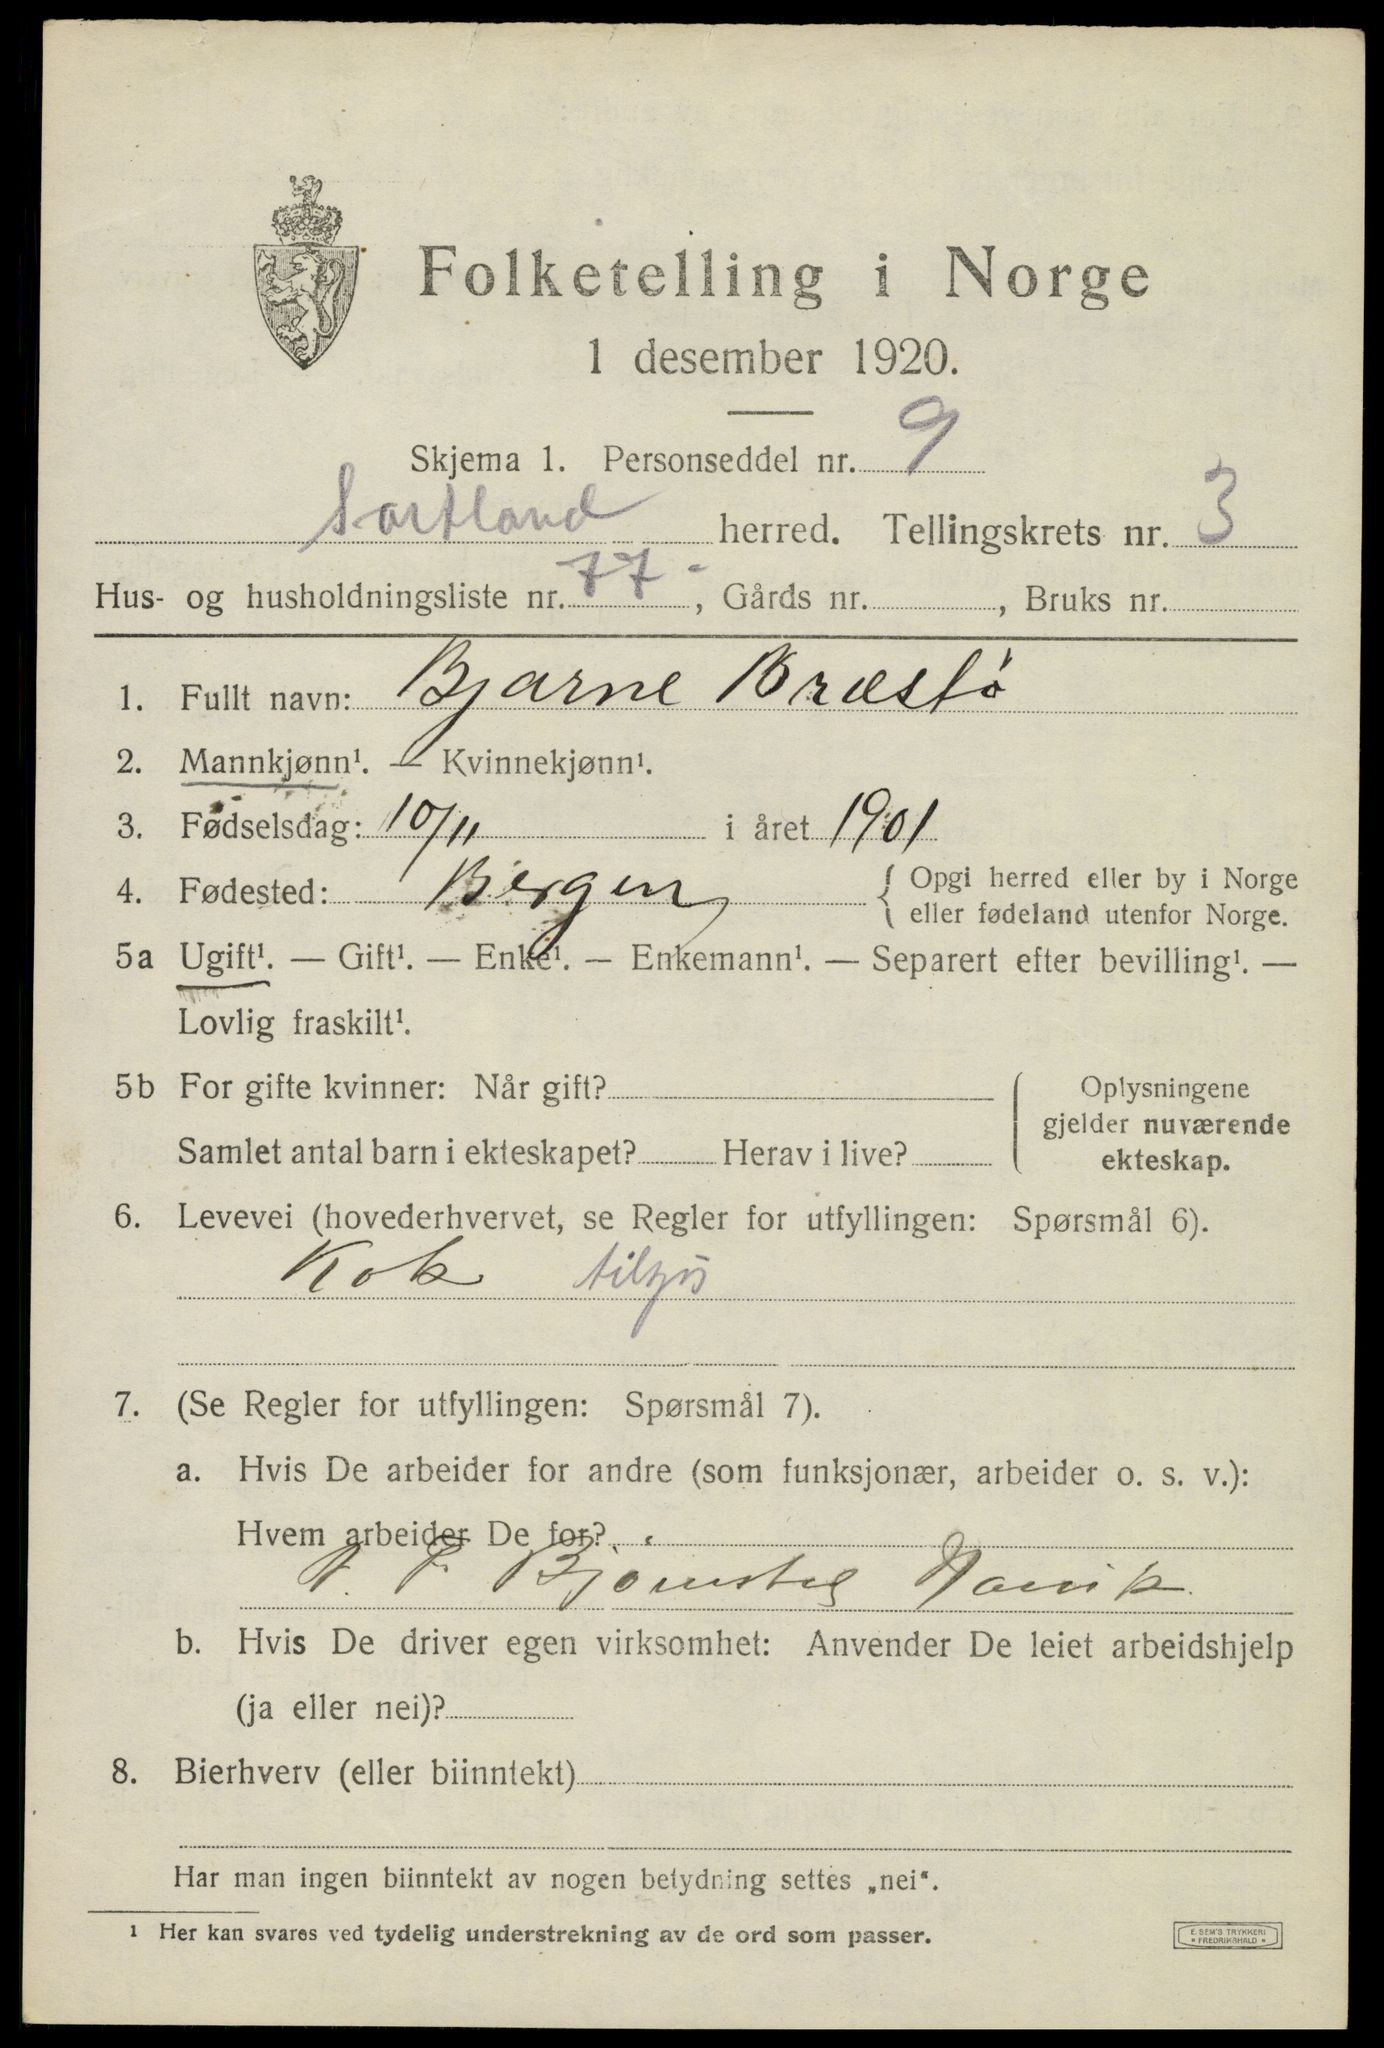 Folketelling i Norge
1 desember 1920.
Skjema 1. Personseddel nr. 9
Sortland herred. Tellingskrets nr. 3
Hus- og husholdningsliste nr. 77 -, Gårds nr. , Bruks nr.
1. Fullt navn: Bjarne Bræstø
2. Mannkjønn¹. — Kvinnekjønn¹.
3. Fødselsdag: 10/11 i året 1901
4. Fødested: Bergen { Opgi herred eller by i Norge
eller fødeland utenfor Norge.
5a Ugift¹. — Gift¹. — Enke¹. — Enkemann¹. — Separert efter bevilling¹. —
Lovlig fraskilt¹.
5b For gifte kvinner: Når gift?
Samlet antal barn i ekteskapet? Herav i live?
Oplysningene
gjelder nuværende
ekteskap.
6. Levevei (hovederhvervet, se Regler for utfyllingen: Spørsmål 6).
Kok tilsjøs
7. (Se Regler for utfyllingen: Spørsmål 7).
a. Hvis De arbeider for andre (som funksjonær, arbeider o. s. v.):
Hvem arbeider De for?
Narvik
b. Hvis De driver egen virksomhet: Anvender De leiet arbeidshjelp
(ja eller nei)?
8. Bierhverv (eller biinntekt)
Har man ingen biinntekt av nogen betydning settes „nei“.
¹ Her kan svares ved tydelig understrekning av de ord som passer.
E. SEM'S TRYKKERI
FREDRIKSHALD